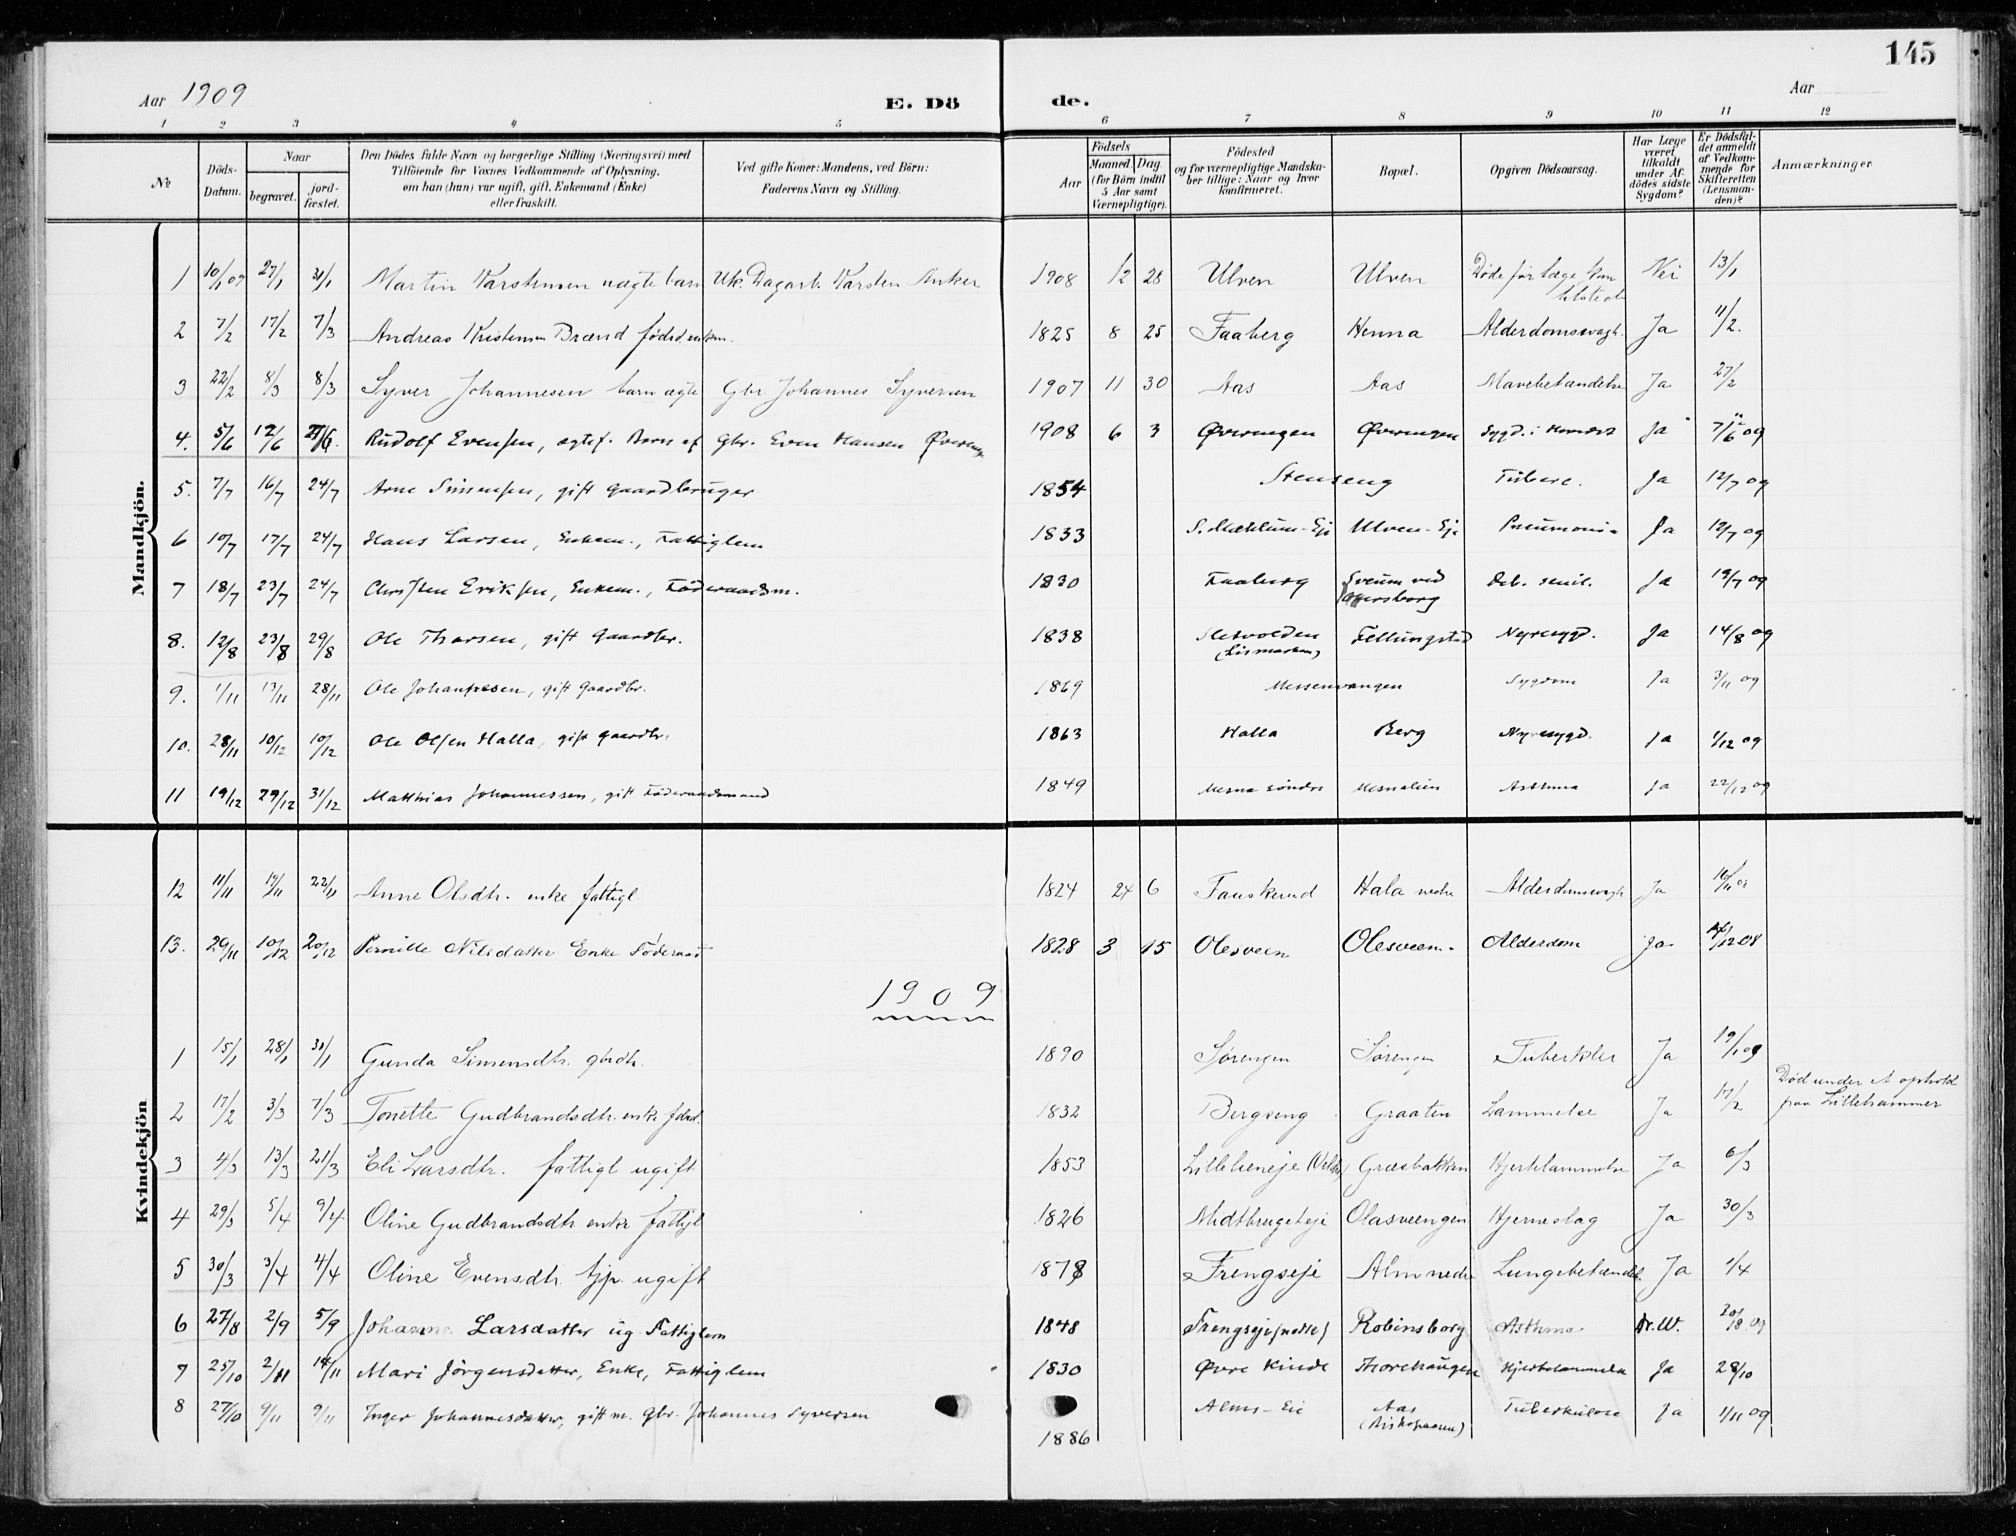 145
Aar 1909
E. Dö
de.
Aar
1 2 3 4 5 6 7 8 9 10 11 12
№
Döds-Datum.
Naar
begravet.
jord-fæstet.
Den Dödes fulde Navn og borgerlige Stilling (Næringsvei) med
Tilföiende for Voxnes Vedkommende af Oplysning,
om han (hun) var ugift, gift, Enkemand (Enke)
eller fraskilt.
Ved gifte Koner: Mandens, ved Börn:
Faderens Navn og Stilling.
Födsels
Aar
Maaned Dag
(for Börn indtil
5 Aar samt
Værnepligtige).
Födested
og for værnepligtige Mandska-
ber tillige: Naar og hvor
konfirmeret.
Bopæl.
Opgiven Dödsaarsag.
Har Læge
været
tilkaldt
under Af-
dödes sidste
Sygdom?
Er Dödsfal-
det anmeldt
af Vedkom-
mende for
Skifteretten
(Lensman-
den)?
Anmærkninger
Mandkjön.
1 10/1 09 27/1 31/1 Martin Karstensen uægte barn Uk. Dagarb. Karsten Anker 1908 12 28 Ulven Ulven Døde før læge kom tilstede Nei 13/1
2 7/2 17/2 7/3 Andreas Kristensen Brænd føderd enkem. 1825 8 25 Faaberg Henna Alderdomssvagh. Ja 11/2.
3 22/2 8/3 8/3 Syver Johannesen barn ægte Gbr Johannes Syversen 1907 11 30 Aas Aas Mavebetændelse Ja 27/2
4. 5/6 12/6 27/6. Rudolf Evensen, ægtef. Barn af Gbr. Even Hansen Øverengen 1908 6 3 Øverengen Øverengen Sygd. i Hovedet Ja 7/6 09
5. 7/7 16/7 24/7 Arne Simensen, gift gaardbruger 1854 Stenseng Tuberc. Ja 12/7 09
6 10/7 17/7 24/7 Hans Larsen, Enkem., Fattiglem 1833 S. Mæhlum-Eje Ulven-Eje Pneumonia Ja 12/7 09
7 18/7 23/7 24/7 Christen Eriksen, Enkem., Föderaadsm. 1830 Faaberg Sveum ved Aggersborg Deb. senil. Ja 19/7 09
8. 12/8 23/8 29/8 Ole Thorsen, gift Gaardbr. 1838 Slesvolden (Lismarken) Fellungstad Nyresygd. Ja 14/8 09
9. 1/11 13/11 28/11 Ole Johannesen, gift Gaardbr. 1869 Messenvangen Sygdom Ja 3/11 09
10. 28/11 10/12 10/12 Ole Olsen Halla, gift gaardbr. 1863 Halla Berg Nyresygd. Ja 1/12 09
11 19/12 29/12 31/12 Matthias Johannessen, gift Föderaadsmand 1849 Mesna söndre Mesnalien Asthma Ja 22/12 09
Kvindekjön
12 11/11 19/11 22/11 Anne Olsdtr. enke fattigl 1824 24 6 Fauskerud Hala nedre Alderdomssvagh Ja 16/11 08
13. 29/11 10/12 20/12 Pernille Nilsdatter Enke Föderaad 1828 3 15 Olesveen Olesveen. Alderdom Ja /12 08
1909
1 15/1 28/1 31/1 Gunda Simensdtr. gbrdtr. 1890 Sørengen Sørengen Tuberkler Ja 19/1 09
2 17/2 3/3 7/3 Tonette Gudbrandsdtr. enke fderd. 1832 Bergseng Graaten Lammelse Ja 17/2 Død under et ophold paa Lillehammer
3 4/3 13/3 21/3 Eli Larsdtr. fattigl ugift 1853 Lilleheneje Græsbakken Hjertelammelse Ja 6/3
4 29/3 5/4 9/4 Oline Gudbrandsdtr enke fattigl 1826 Midtbrugeteje Olasveengen Hjerneslag Ja 30/3
5 30/3 3/4 4/4 Oline Evensdtr. tjp. ugift 1878 Frengseje Alm nedre Lungebetændelse Ja 1/4
6 27/8 2/9 5/9 Johanne Larsdatter ug Fattiglem 1848 Frengseje (nedre) Robinsborg Asthma Dr. W. 30/8. 09
7 25/10 2/11 14/11 Mari Jörgensdatter, Enke, Fattiglem 1830 Øvre Kinde Thorehaugen Hjertelammelse Ja 28/10
8 27/10 9/11 9/11 Inger Johannesdatter, gift m. Gbr. Johannes Syversen 1886 Alms-Eie Aas (Biskopaasen) Tuberkulose Ja 1/11 09